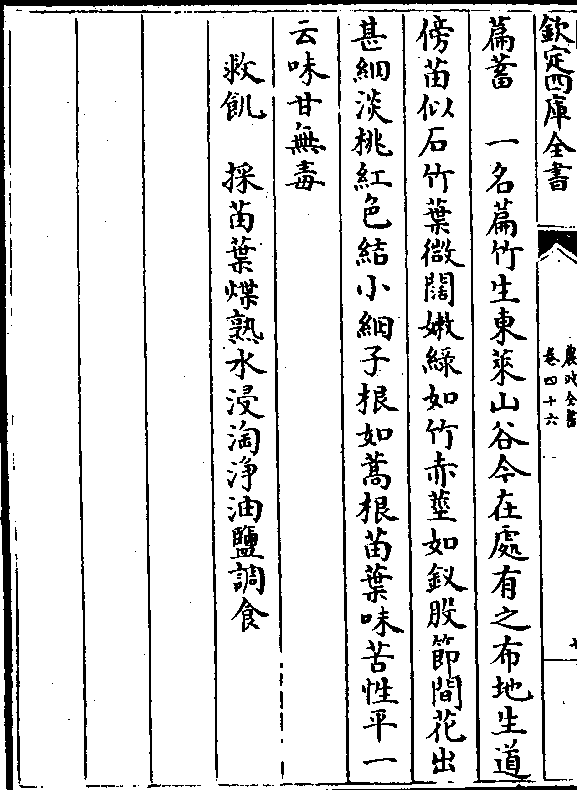 欽定四庫全書
農政全書
卷四十六
萹蓄　一名萹竹生東萊山谷今在處有之布地生道
傍苗似石竹葉微闊嫩綠如竹赤莖如釵股節間花出
甚細淡桃紅色結小細子根如蒿根苗葉味苦性平一
云味甘無毒
救飢　採苗葉煠熟水浸淘淨油鹽調食